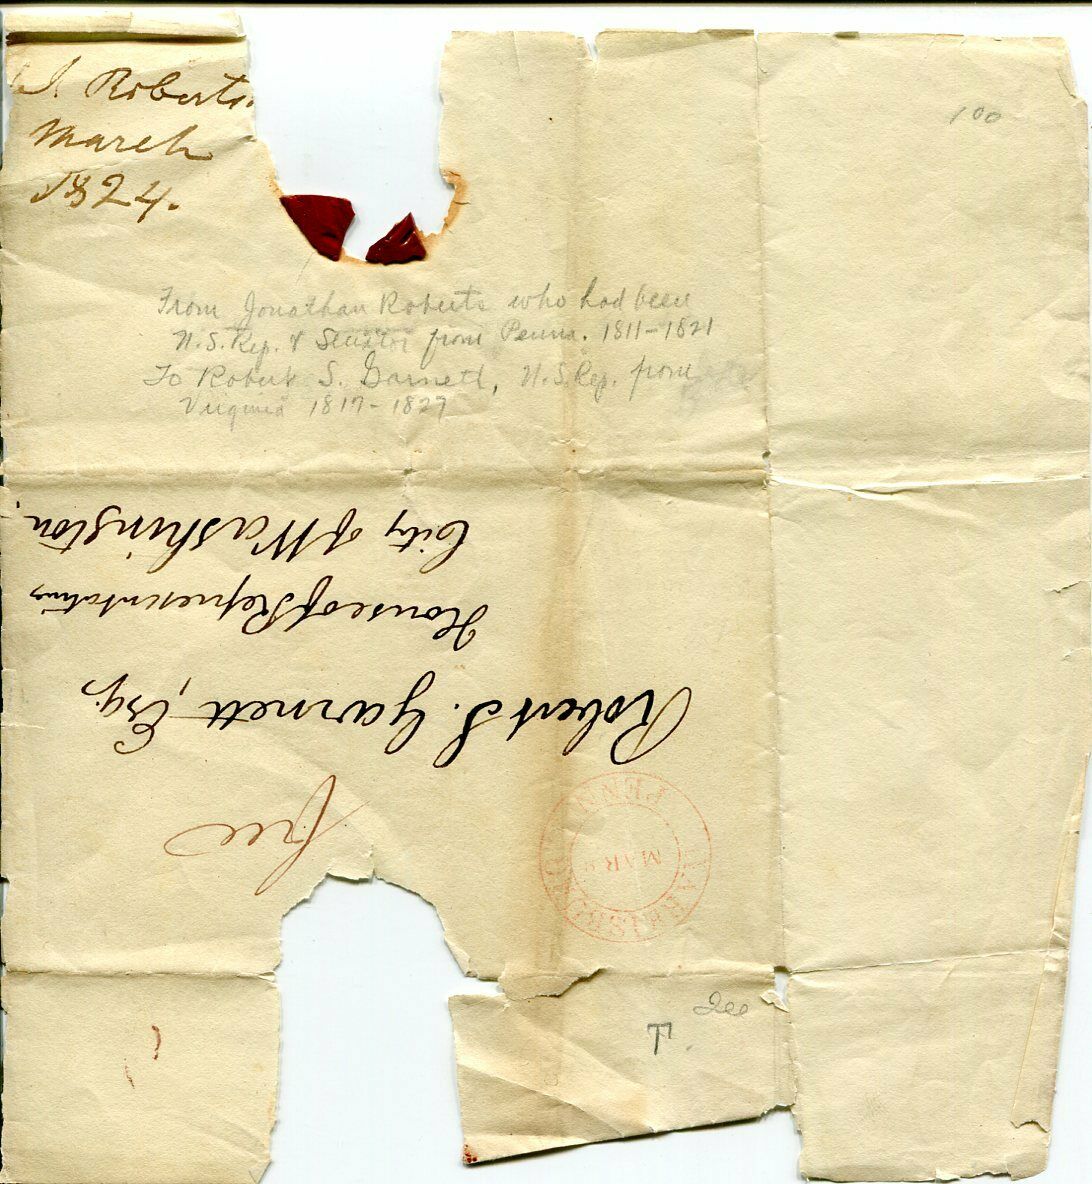 J. Roberts
March
1824.
100
From Jonathan Roberts who had been
U.S. Rep. & Senator from Penna. 1811-1821
To Robert S. Garnett, U.S. Rep. from
Virginia 1817-1827
Robert S. Garnett, Esq.
House of Representatives
City of Washington.
free
HARRISBURG PENN
MAR
T